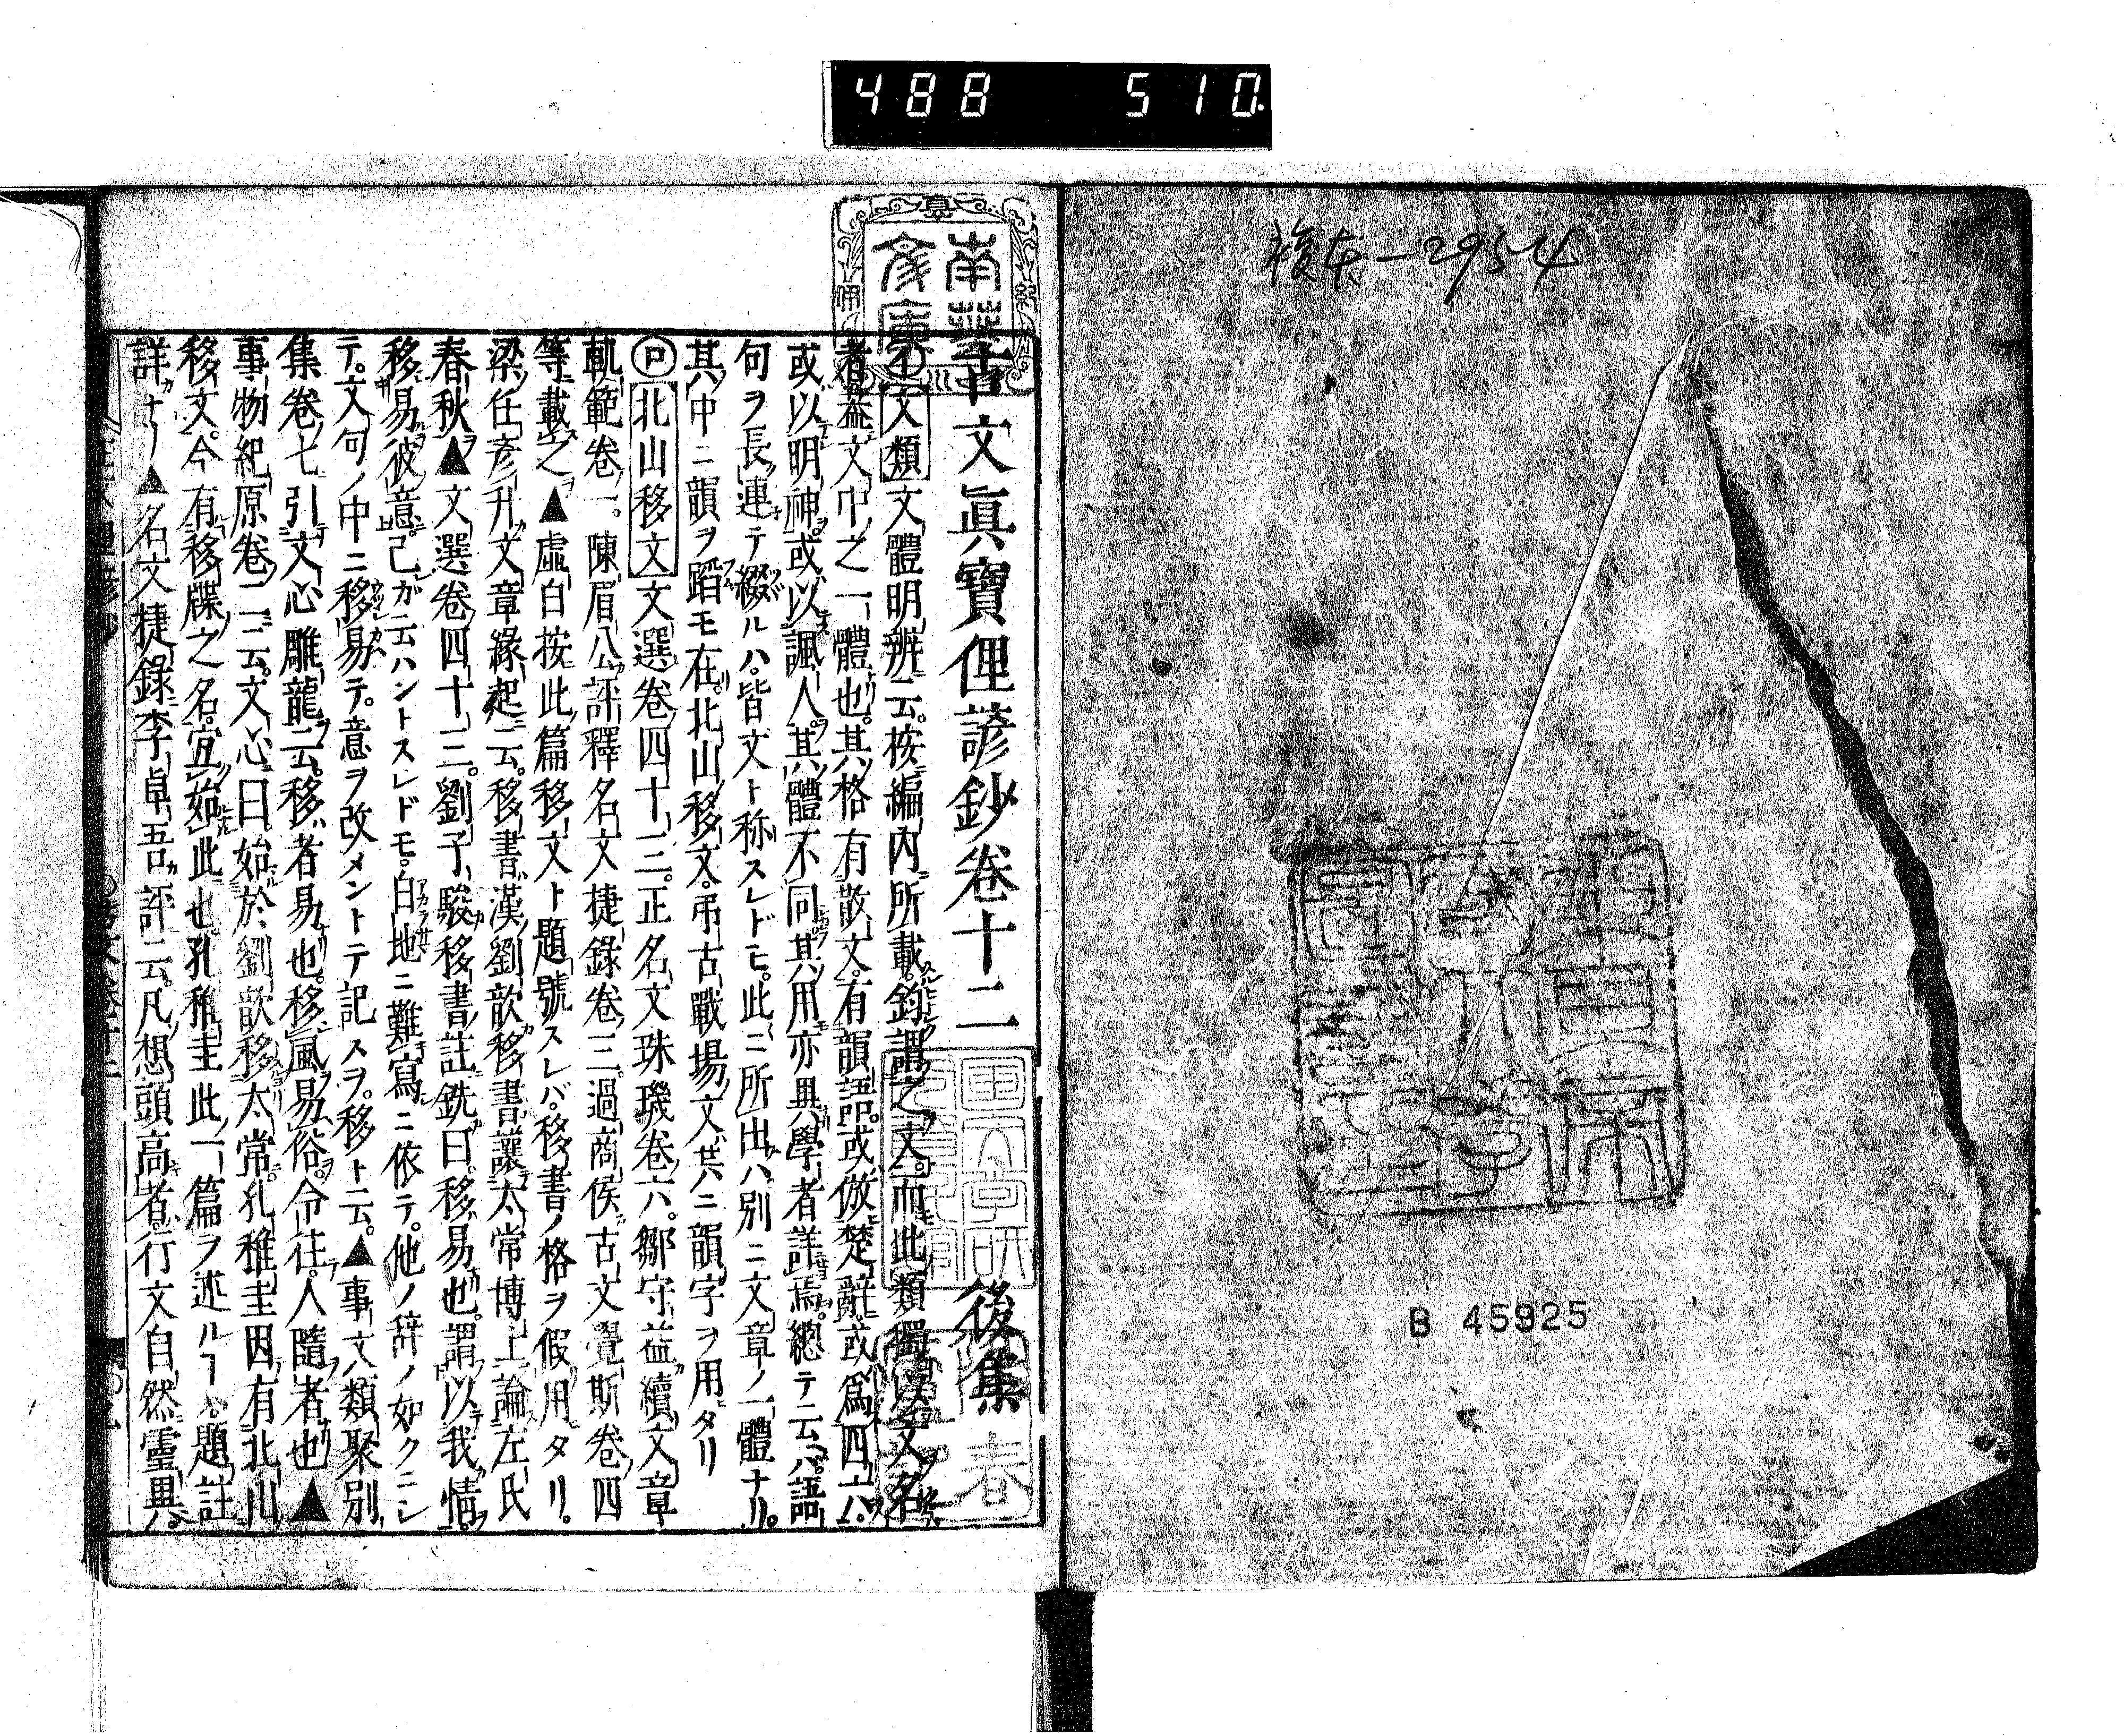 488 510
複本-2954
B 45925
古文眞寶俚諺鈔卷十二 後集
文類 文體明辨云。按編內所載。鈞謂之文。而此類獨以文名
者。蓋文中之一體也。其格有散文。有韻語。或倣楚辭。或爲四六。
或以明神。或以諷人。其體不同。其用亦異。學者詳焉。總テ云ハ語
句ヲ長連テ綴ルハ。皆文ト称スレドモ。此ニ所出ハ。別ニ文章ノ一體ナリ。
其中ニ韻ヲ蹈モ在。北山移文。弔古戰場文。共ニ韻字ヲ用タリ
北山移文 文選卷四十三。正名文珠璣卷六。鄒守益續文章
軌範卷一。陳眉公評釋名文捷錄卷三。過商侯古文覺斯卷四
等載之▲虛白按此篇移文ト題號スレバ。移書ノ格ヲ假用タリ。
梁任彥升文章緣起云。移書漢劉歆移書讓太常博士論左氏
春秋▲文選卷四十三。劉子駿移書註銑曰。移易也。謂以我情。
移易彼意。己ガ云ハントスレドモ。白地ニ難寫ニ依テ。他ノ辞ノ如クニシ
テ。文句ノ中ニ移易テ。意ヲ改メントテ記スヲ。移ト云。▲事文類聚別
集卷七引文心雕龍云。移者易也。移風易俗。令往人隨者也▲
事物紀原卷二云。文心曰。始於劉歆移太常。孔稚圭因有北山
移文。今有移牒之名。宜始此也。孔稚圭此一篇ヲ述ルヿ。題註
詳ナリ▲名文捷錄李卓吾評云。凡想頭高者。行文自然靈異。